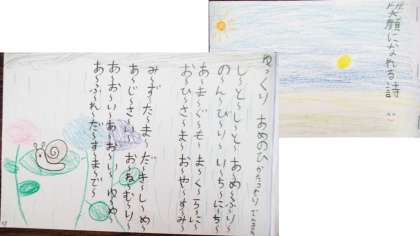 笑顔になれる詩
ゆっくり あめのひ かたつむり
し〜と〜し〜と〜あめ〜ふり〜
の〜ん〜び〜り〜い〜ち〜に〜ち〜
あ〜ま〜ぐ〜も〜ま〜く〜ら〜に〜
お〜ひ〜さ〜ま〜お〜や〜す〜み
み〜ず〜た〜ま〜だ〜き〜し〜め〜
あ〜じ〜さ〜い〜お〜ね〜む〜り〜
あ〜お〜い〜あ〜お〜い〜ゆ〜め
あ〜ふ〜れ〜だ〜す〜ま〜で〜